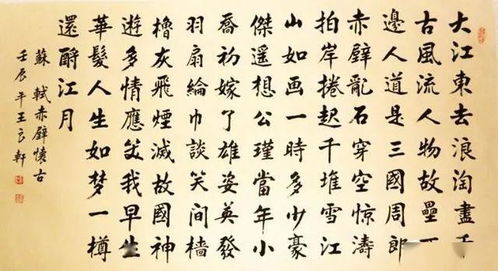 大江東去浪淘盡千
古風流人物故壘
邊人道是三國周郎
赤壁亂石穿空驚濤
拍岸捲起千堆雪江
山如画一時多少豪
傑遥想公瑾當年小
喬初嫁了雄姿英發
羽扇綸巾談笑間檣
櫓灰飛煙滅故國神
遊多情應笑我早生
華髮人生如梦一樽
還酹江月
蘇軾赤壁懷古
壬辰年王良軒